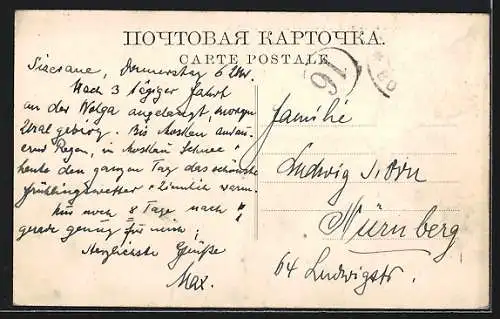 ПОЧТОВАЯ КАРТОЧКА.
CARTE POSTALE.
Sizerane, Donnerstag 6 Uhr.
Nach 3 tägiger Fahrt
an der Wolga angelangt, morgen
Uralgebirg. Bis Moskau
Regen, in Moskau Schnee
heute den ganzen Tag das schönste
Frühlingswetter ziemlich warm.
Nur noch 8 Tage nach
gerade genug für mich;
Herzlichste Grüße
Max.
16
Familie
Ludwig
Nürnberg
64 Ludwigstr.